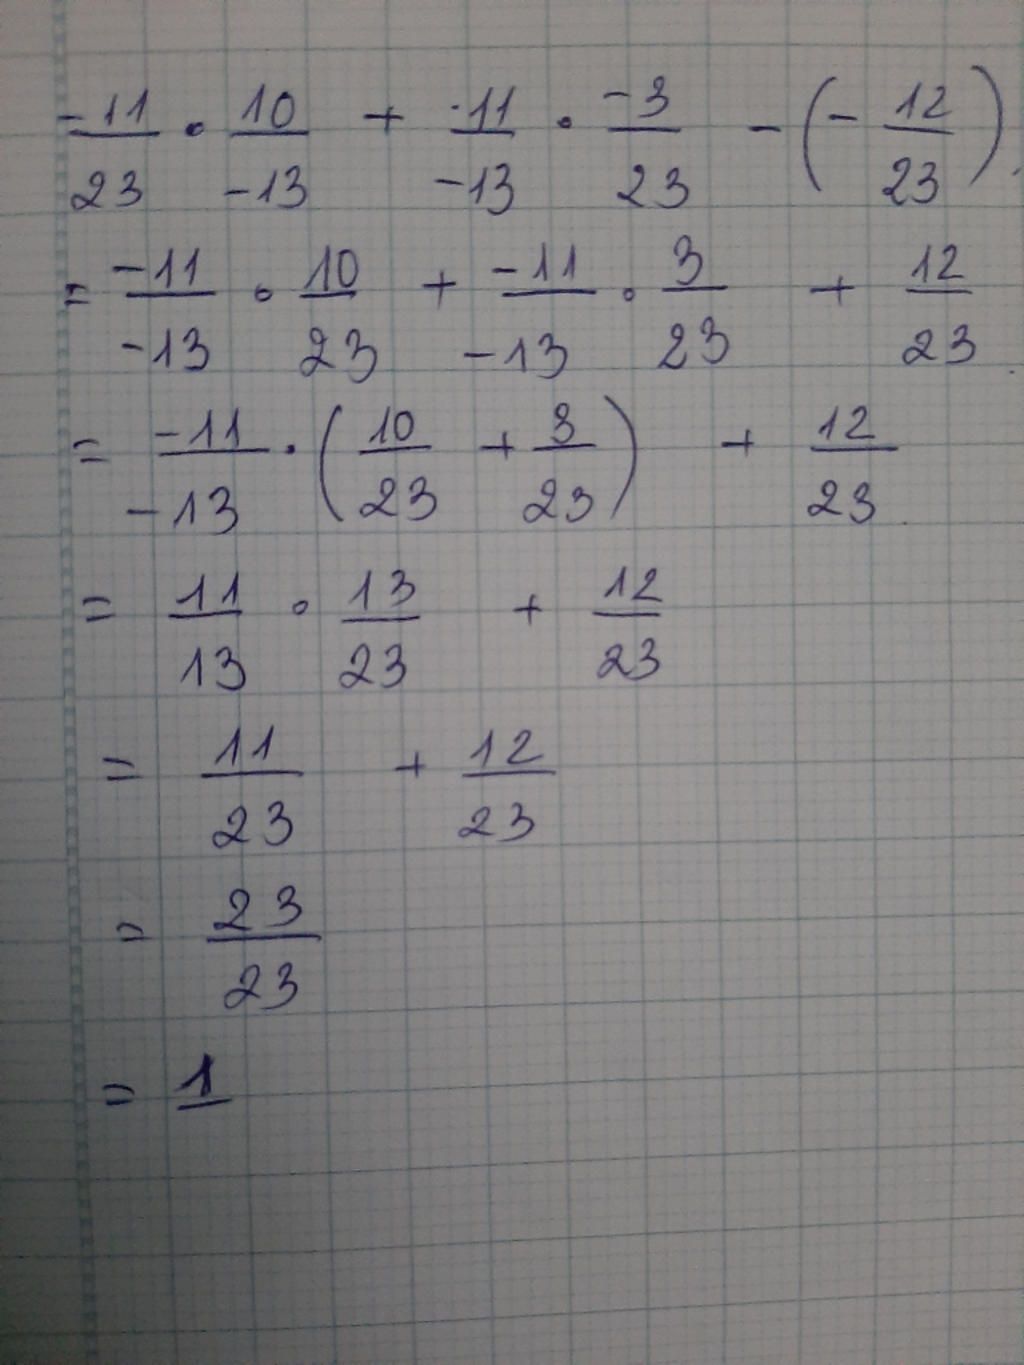 -11/23 · 10/-13 + -11/-13 · -3/23 - (- 12/23)
= -11/-13 · 10/23 + -11/-13 · 3/23 + 12/23
= -11/-13 · (10/23 + 3/23) + 12/23
= 11/13 · 13/23 + 12/23
= 11/23 + 12/23
= 23/23
= 1